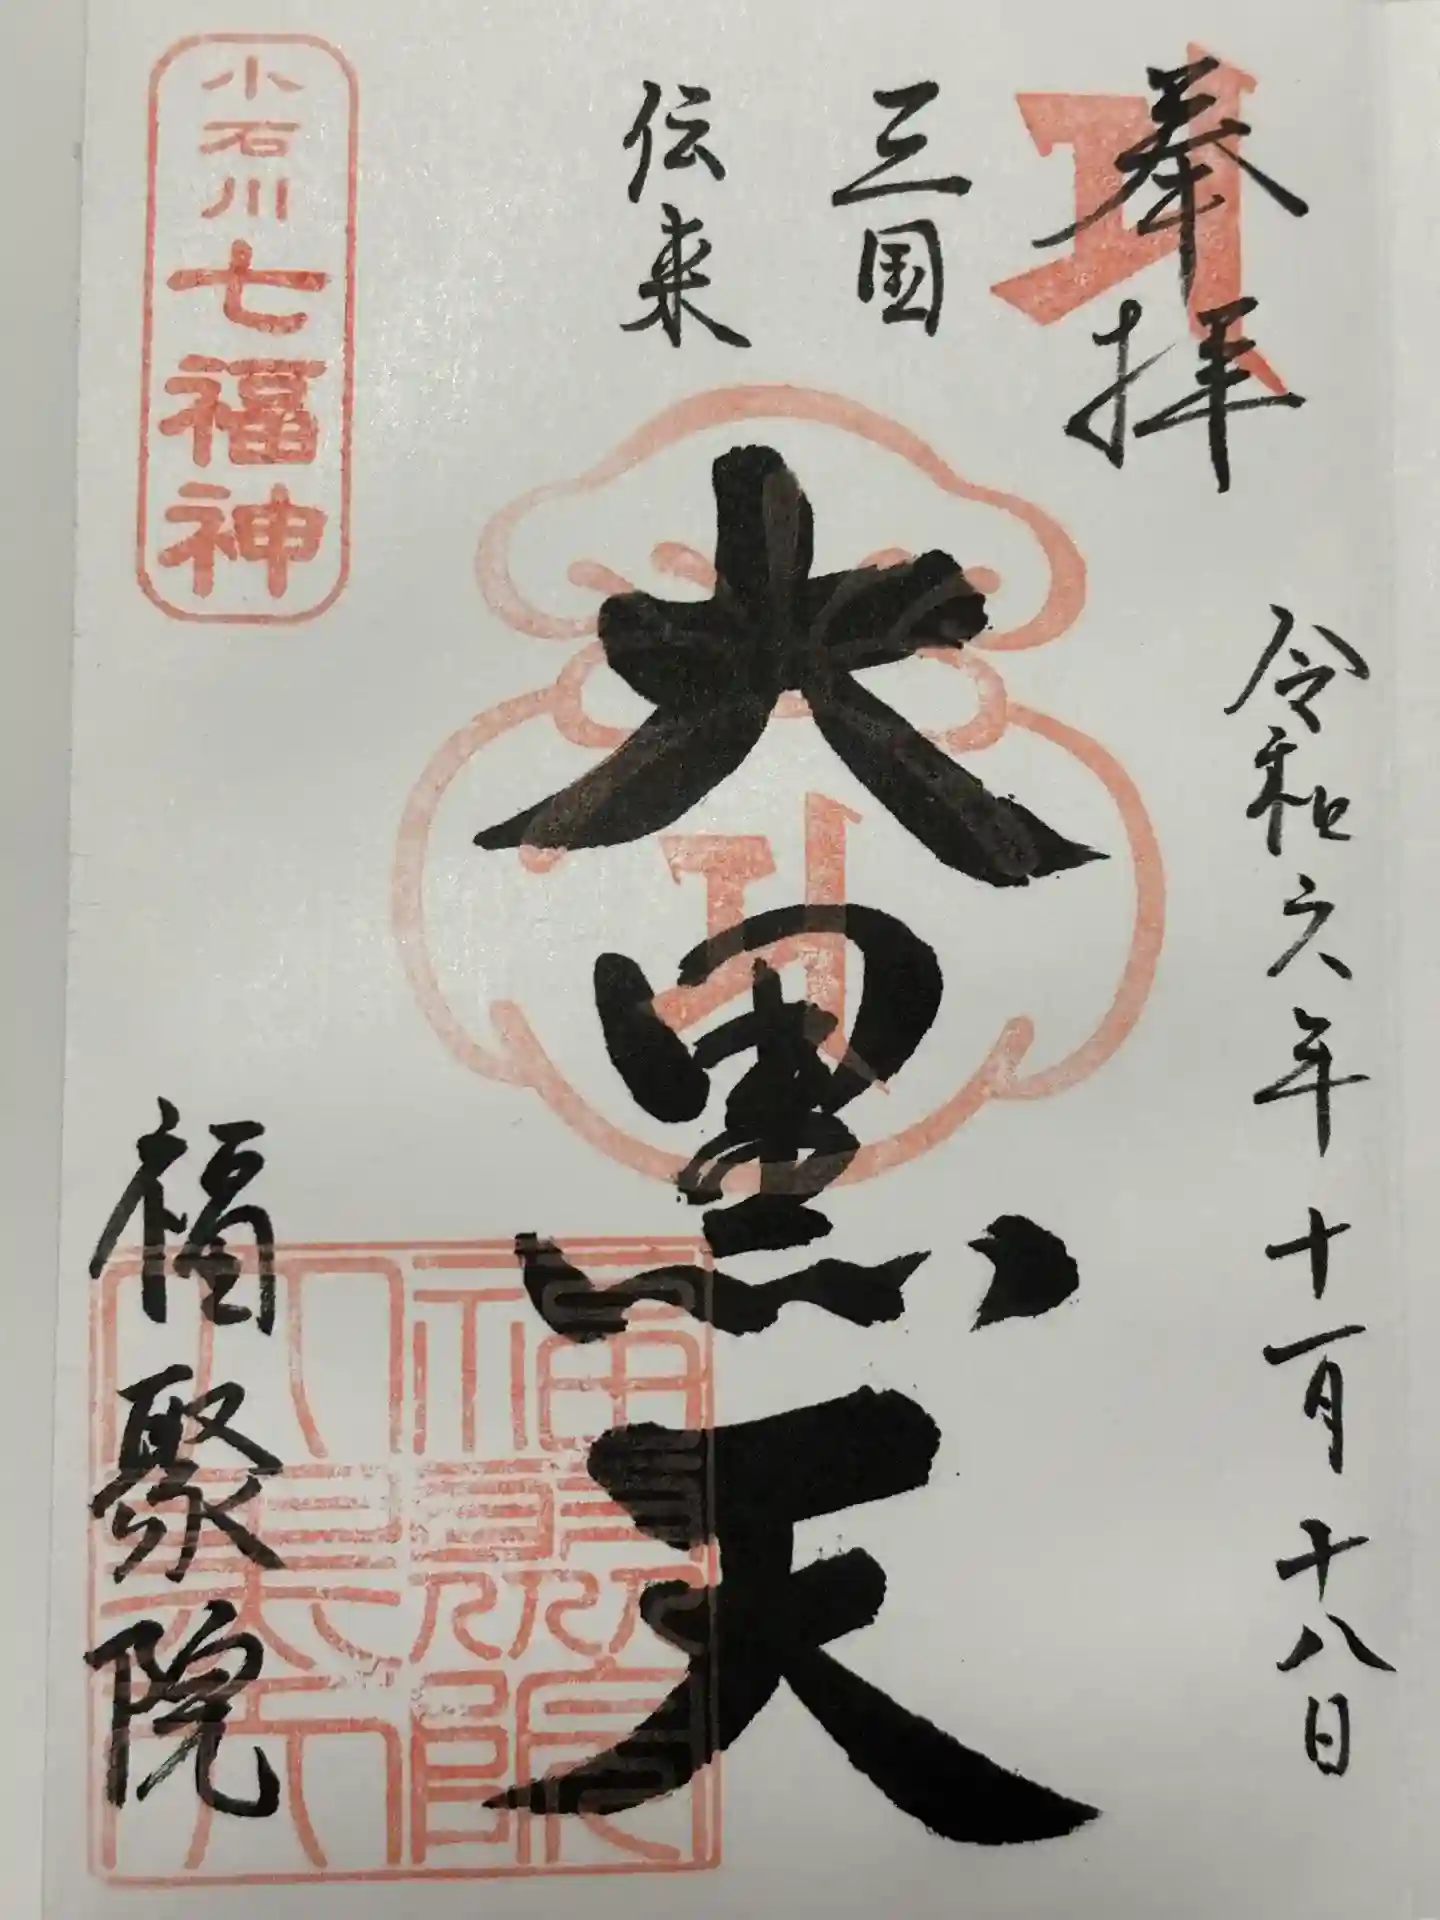 奉拝
令和六年十一月十八日
三国
伝来
大黒天
小石川七福神
福聚院
福聚院
大黒天